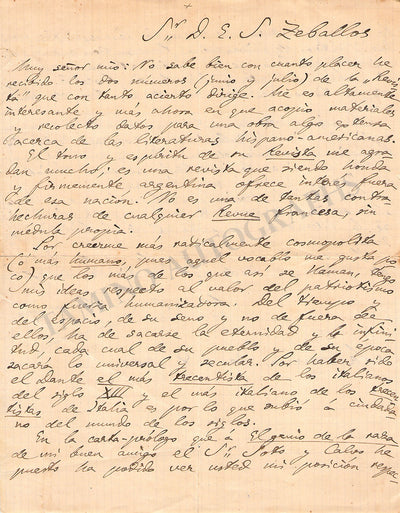 Sr. D. E. S. Zeballos
Muy señor mio: No sabe bien con cuanto placer he
recibido los dos números (junio y julio) de la "Revis-
ta" que con tanto acierto dirige. Me es altamente
interesante y más ahora en que acopio materiales
y recolecto datos para una obra algo extensa
acerca de las literaturas hispano-americanas.
El tono y espíritu de su Revista me agra
dan mucho; es una revista que siendo honda
y firmemente argentina ofrece interés fuera
de esa nacion. No es una de tantas contra
hechuras de cualquier Revue francesa, sin
médula propia.
Por creerme más radicalmente cosmopolita
(ó más humano, pues aquel vocablo me gusta po
co) que los más de los que así se llaman, tengo
mis ideas respecto al valor del patriotismo
como fuerza humanizadora. Del tiempo y
del espacio, de su seno y no de fuera de
ellos, ha de sacarse la eternidad y la infini
tud, cada cual de su pueblo y de su época
sacará lo universal y secular. Por haber sido
el Dante el más trecentista de los italianos
del siglo XIII y el más italiano de los trecen
tistas de Italia es por lo que subió a ciudada
no del mundo de los siglos.
En la carta-prólogo que a El genio de la raza
de mi buen amigo el Sr. Soto y Calvo he
puesto ha podido ver usted mi posicion respec-
TAMINO AUTOGRAPHS